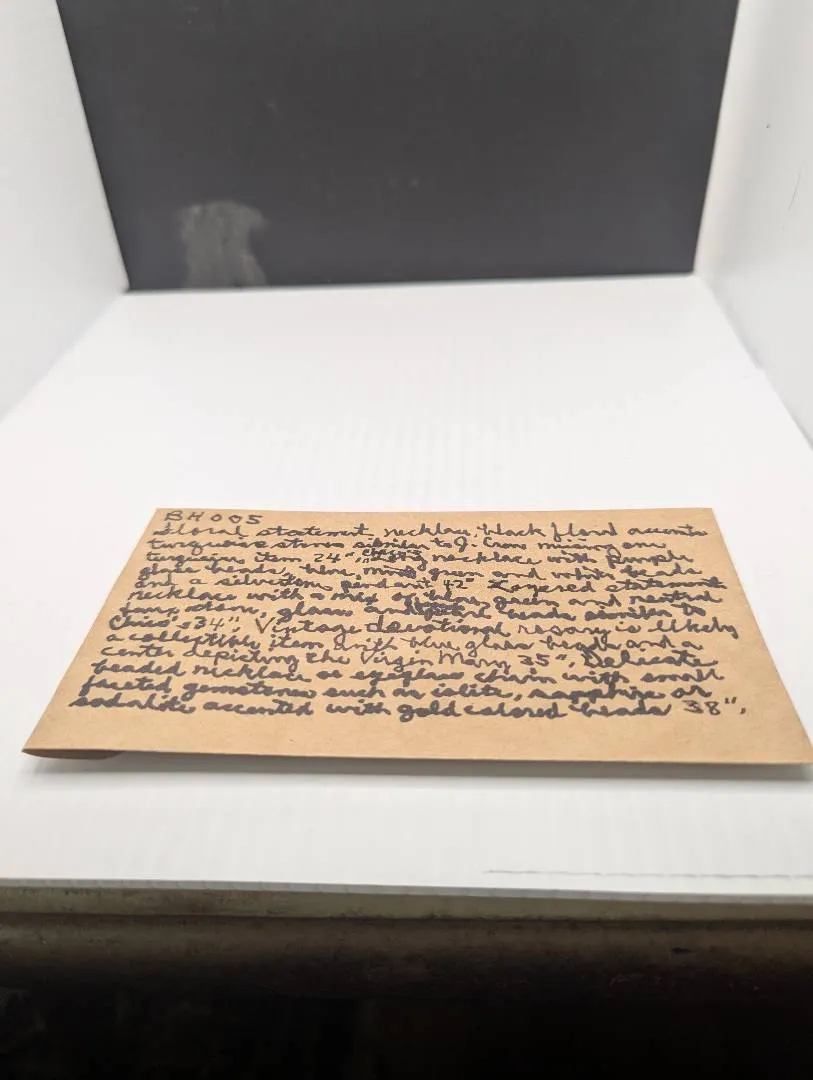 BH005
Floral statement necklace, black floral accents
turquoise stones similar to J. Crew missing one
turquoise item 24", necklace with purple
glass beads, blue, mint green and white beads
and a silvertone pendant 42" Layered statement
necklace with a mix of blue, green and neutral
tone stone, glass and beads similar to
Chico's 34". Vintage devotional rosary is likely
a collectible item with blue glass beads and a
center depicting the Virgin Mary 35", Delicate
beaded necklace or eyeglass chain with small
faceted gemstones such as iolite, sapphire or
sodalite accented with gold colored beads 38",